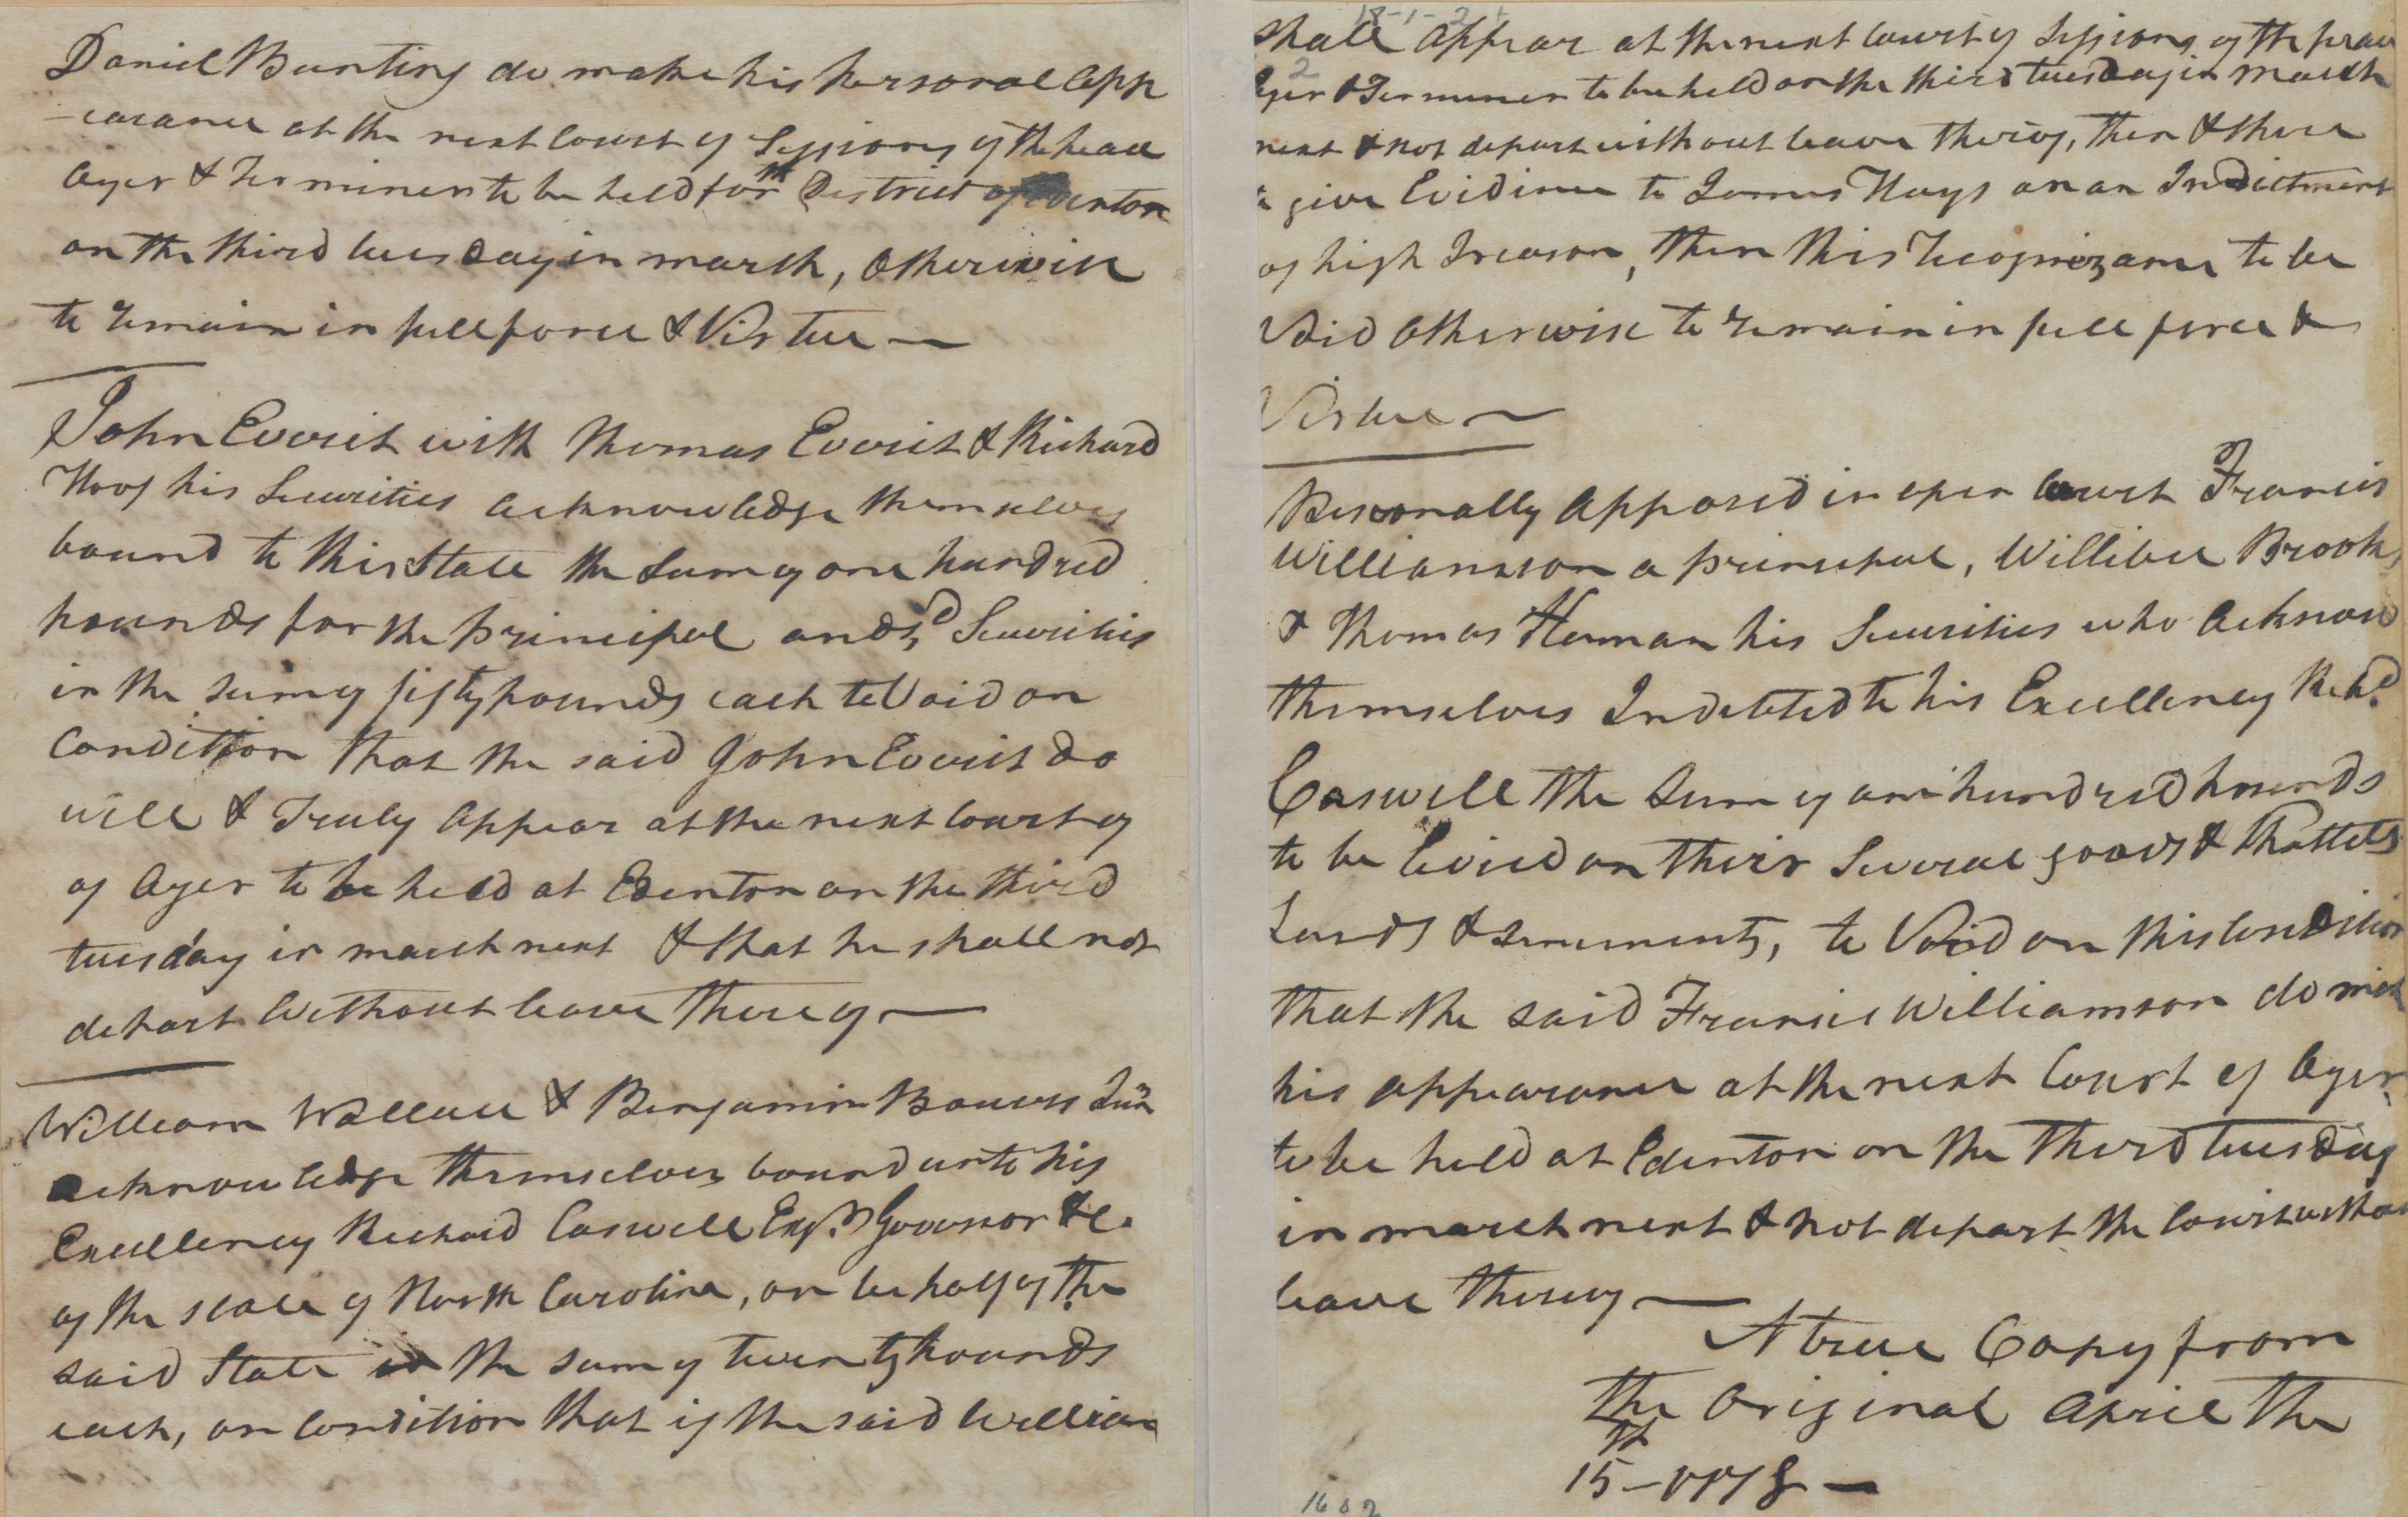 Daniel Bunting do make his personal app
-earance at the next Court of Sessions of the peace
Oyer & Terminer to be held for the District of Edenton
on the third tuesday in march, Otherwise
to remain in full force & Virtue —
John Everit with Thomas Everit & Richard
his Securities acknowledge themselves
bound to this State the Sum of one hundred
pounds for the principal and sd Securities
in the sum of fifty pounds each to Void on
Condition that the said John Everit do
well & Truly appear at the next Court of
of Oyer to be held at Edenton on the third
tuesday in march next & that he shall not
depart without leave thereof —
William Wallace & Benjamin Bowers Junr
acknowledge themselves bound unto his
Excellency Richard Caswell Esqr Governor &c.
of the state of North Carolina, on behalf of the
said State in the sum of twenty pounds
each, on Condition that if the said William
18-1-2
2
shall appear at the next Court of Sessions of the peace
Oyer & Terminer to be held on the third tuesday in march
next & not depart without leave thereof, then & there
to give Evidence to James Hays on an Indictment
of high Treason, then this Recognizance to be
Void Otherwise to remain in full force &
Virtue —
Personally appeared in open Court Francis
Williamson a principal, Brook
& Thomas Harman his Securities who acknow
themselves Indebted to his Excellency Richd
Caswell the Sum of one hundred pounds
to be levied on their Several goods & Chattels
Lands & tenements, to Void on this Condition
that the said Francis Williamson do make
his appearance at the next Court of Oyer
to be held at Edenton on the Third tuesday
in march next & not depart the Court without
leave thereof —
A true Copy from
the Original April the
15th – 1778 —
1602